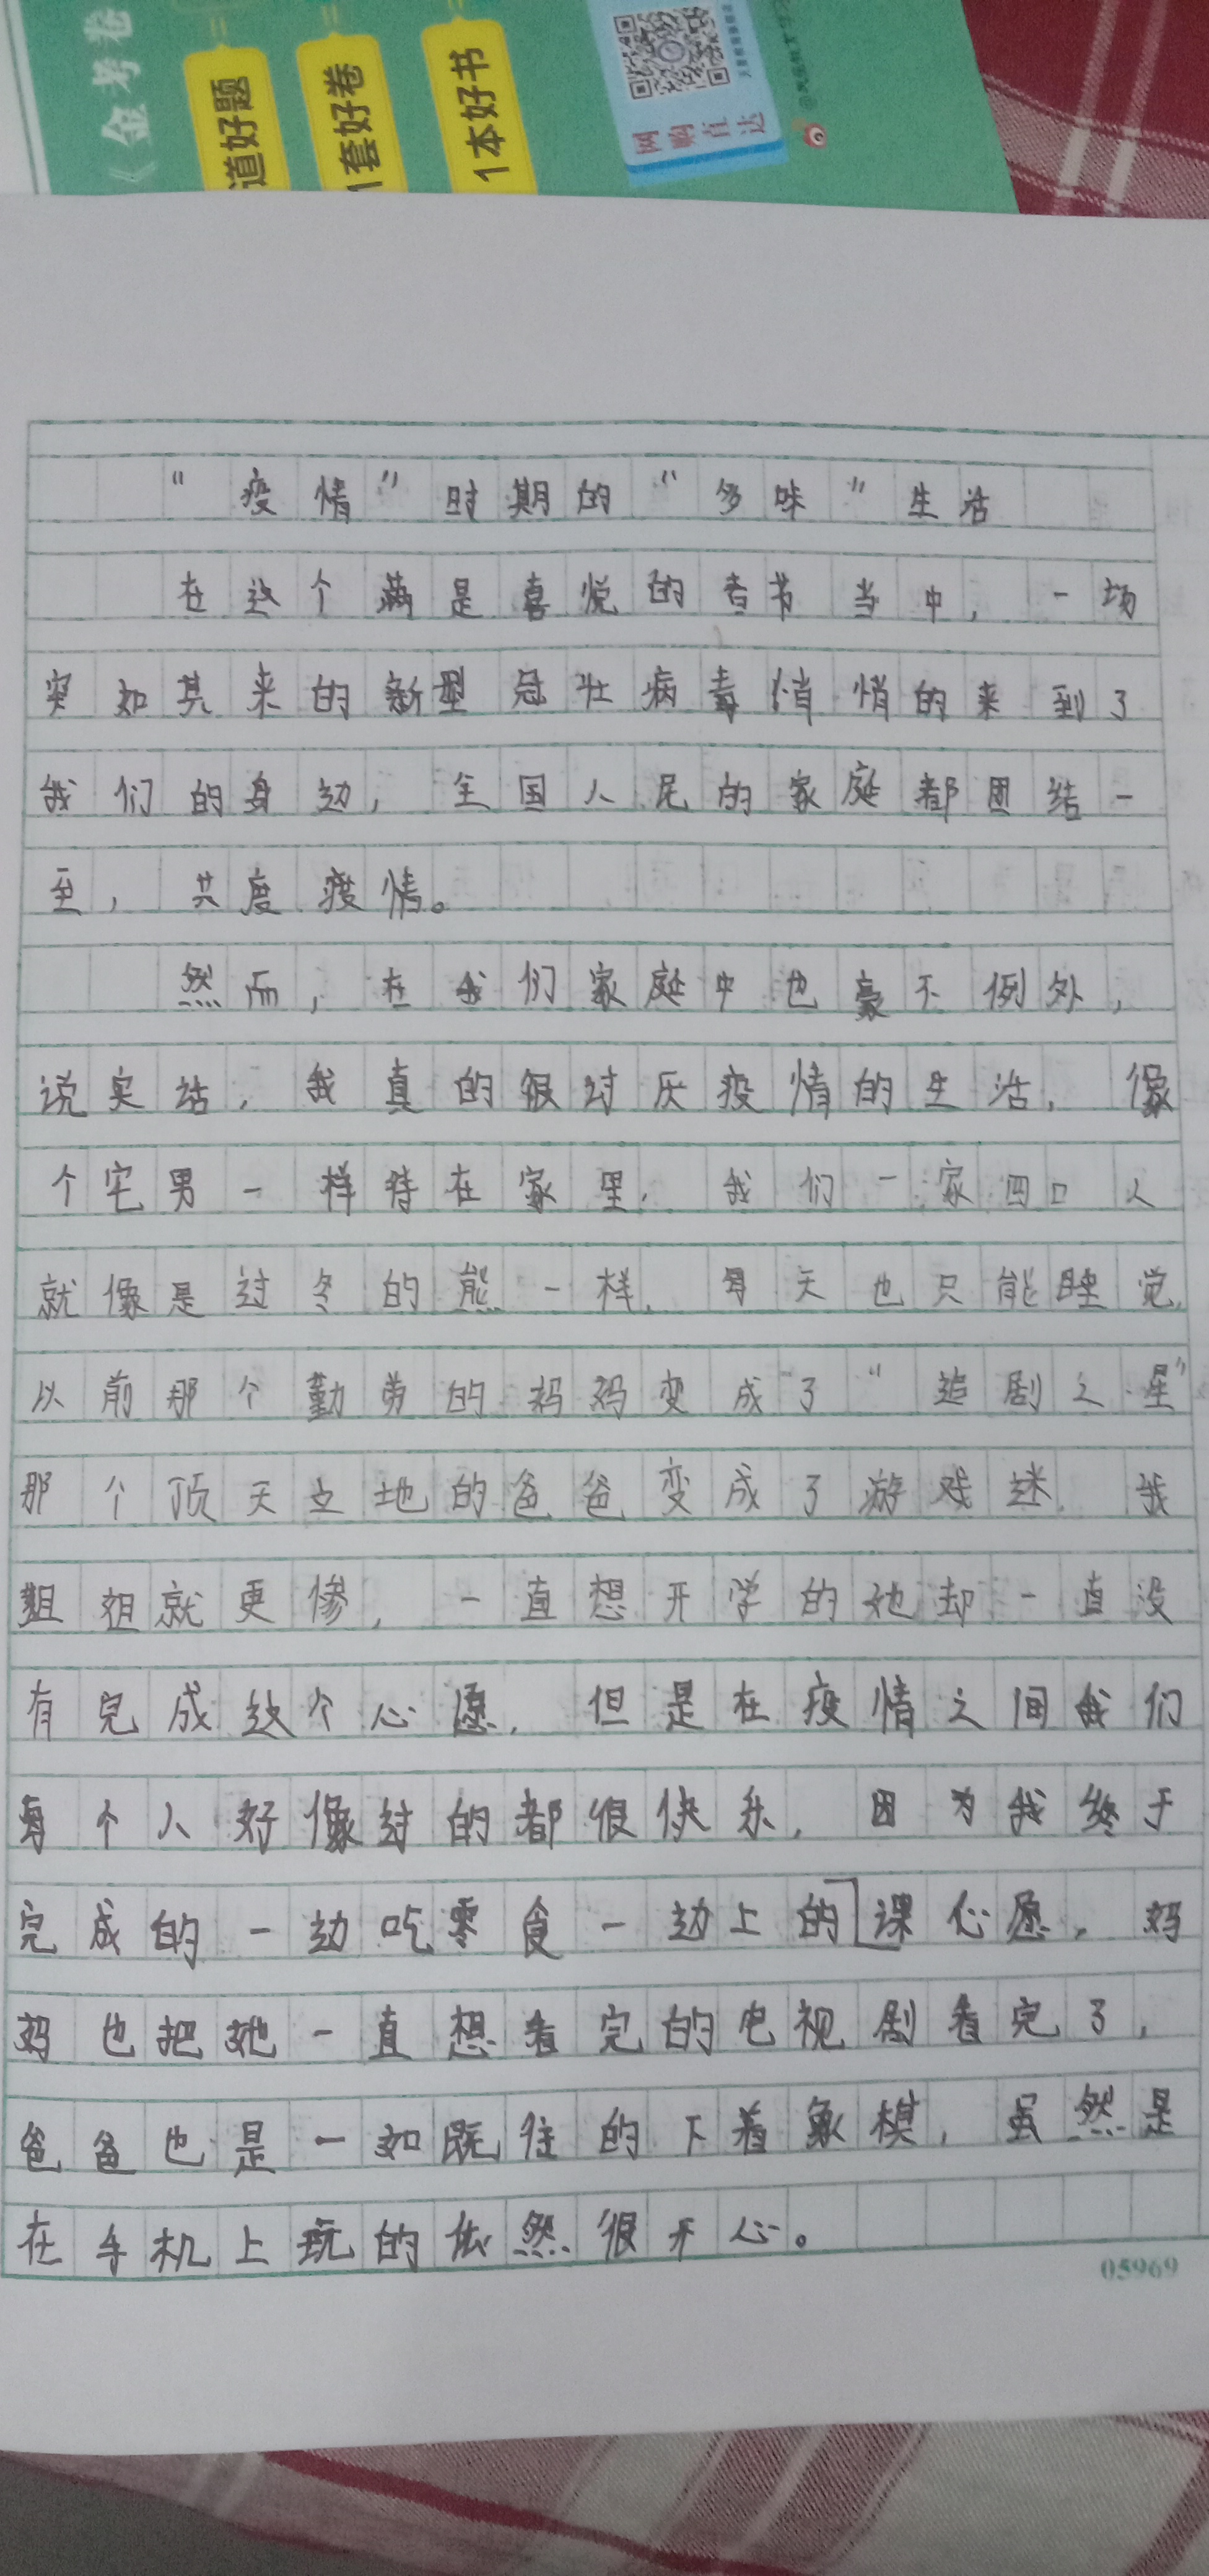 《金考卷
道好题
1套好卷
1本好书
网购直达
“疫情”时期的“多味”生活
在这个满是喜悦的春节当中，一场
突如其来的新型冠壮病毒悄悄的来到了
我们的身边，全国人民的家庭都团结一
至，共度疫情。
然而，在我们家庭中也豪不例外，
说实话，我真的很讨厌疫情的生活，像
个宅男一样待在家里，我们一家四口人
就像是过冬的熊一样，每天也只能睡觉，
以前那个勤劳的妈妈变成了“追剧之星”
那个顶天立地的爸爸变成了游戏迷，我
姐姐就更惨，一直想开学的她却一直没
有完成这个心愿，但是在疫情之间我们
每个人好像过的都很快乐，因为我终于
完成的一边吃零食一边上的课心愿，妈
妈也把她一直想看完的电视剧看完了，
爸爸也是一如既往的下着象棋，虽然是
在手机上玩的依然很开心。
05969